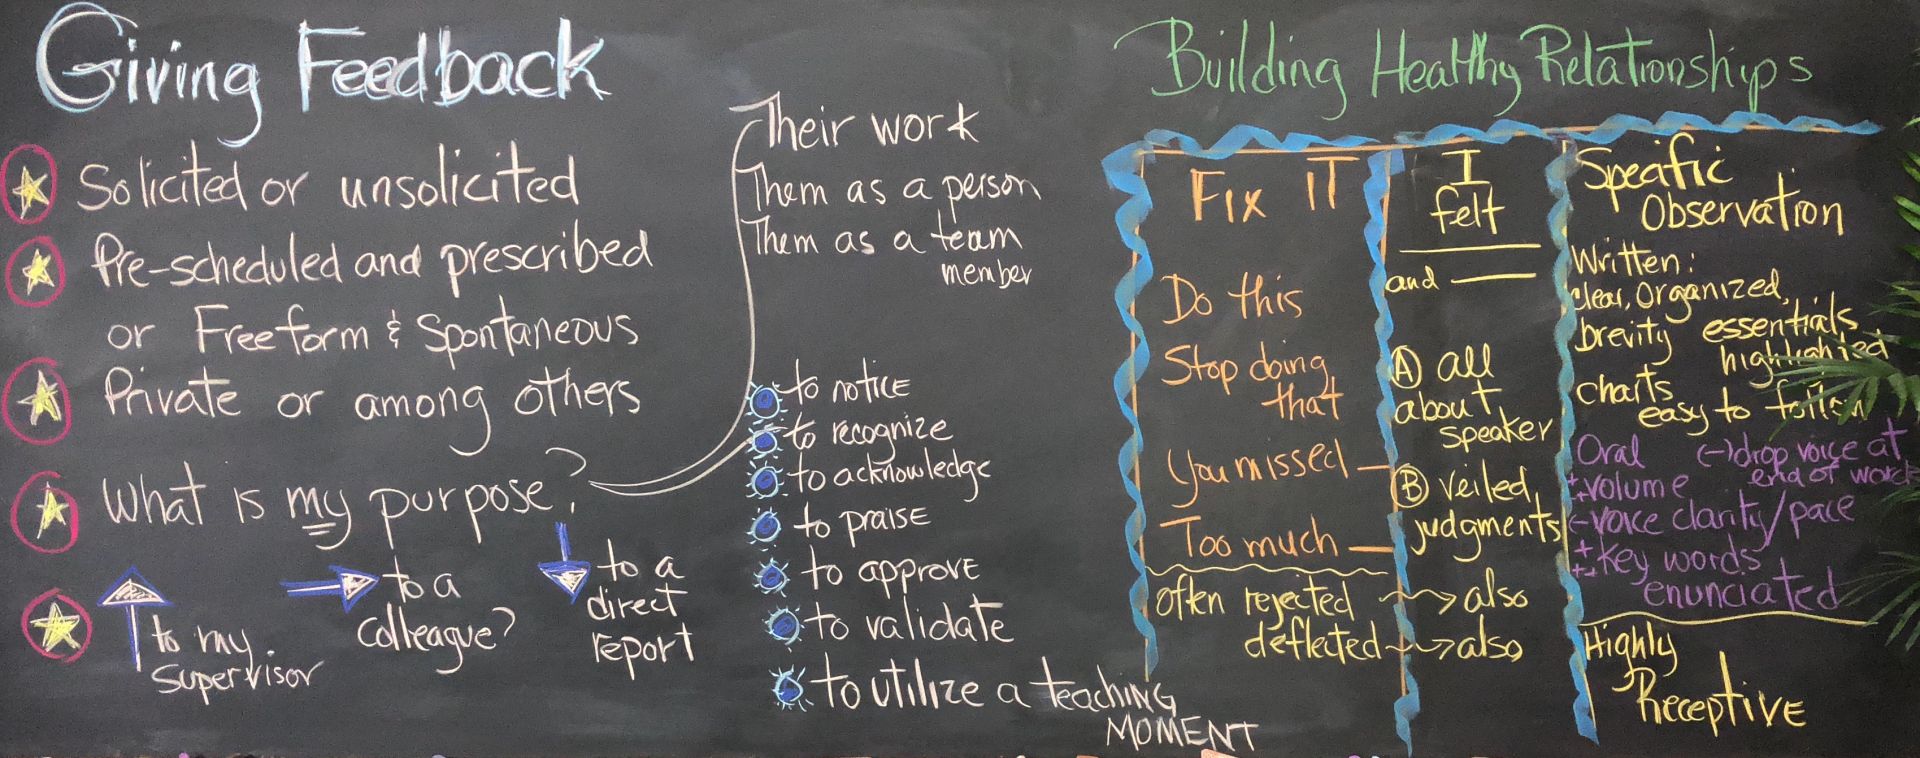 Giving Feedback
Solicited or unsolicited
Pre-scheduled and prescribed
or Freeform & Spontaneous
Private or among others
What is my purpose?
to my
supervisor
to a
colleague?
to a
direct
report
Their work
Them as a person
Them as a team
member
to notice
to recognize
to acknowledge
to praise
to approve
to validate
to utilize a teaching
MOMENT
Building Healthy Relationships
Fix IT
Do this
Stop doing
that
You missed —
Too much —
often rejected
deflected
I
felt
and
A all
about
speaker
B veiled
judgments
also
also
Specific
Observation
Written:
clear, organized,
brevity essentials
highlighted
charts
easy to follow
Oral (-) drop voice at
end of words
volume
voice clarity/pace
key words
enunciated
Highly
Receptive